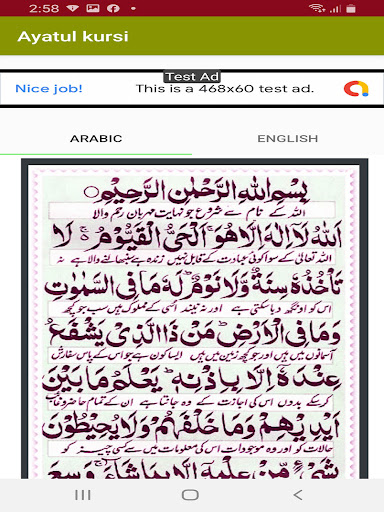 2:58
Ayatul kursi
Test Ad
Nice job!
This is a 468x60 test ad.
ARABIC
ENGLISH
بِسْمِ اللهِ الرَّحْمٰنِ الرَّحِيْمِ
اللہ کے نام سے شروع جو نہایت مہربان رحم والا
اَللهُ لَآ اِلٰهَ اِلَّا هُوَ ۚ اَلْحَيُّ الْقَيُّوْمُ ۚ لَا
اللہ تعالیٰ کے سوا کوئی عبادت کے قابل نہیں زندہ ہے سنبھالنے والا ہے نہ
تَاْخُذُهٗ سِنَةٌ وَّلَا نَوْمٌ ؕ لَهٗ مَا فِي السَّمٰوٰتِ
اس کو اونگھ دبا سکتی ہے اور نہ نیند اسی کے مملوک ہیں سب جو کچھ
وَمَا فِي الْاَرْضِ ؕ مَنْ ذَا الَّذِيْ يَشْفَعُ
آسمانوں میں ہیں اور جو کچھ زمین میں ہیں ایسا کون ہے جو اس کے پاس سفارش
عِنْدَهٗٓ اِلَّا بِاِذْنِهٖ ؕ يَعْلَمُ مَا بَيْنَ
کرسکے بدوں اس کی اجازت کے وہ جانتا ہے ان کے تمام حاضر و غائب
اَيْدِيْهِمْ وَمَا خَلْفَهُمْ ۚ وَلَا يُحِيْطُوْنَ
حالات کو اور وہ موجودات اس کی معلومات میں سے کسی چیز کو
بِشَيْءٍ مِّنْ عِلْمِهٖٓ اِلَّا بِمَا شَآءَ ۚ وَسِعَ